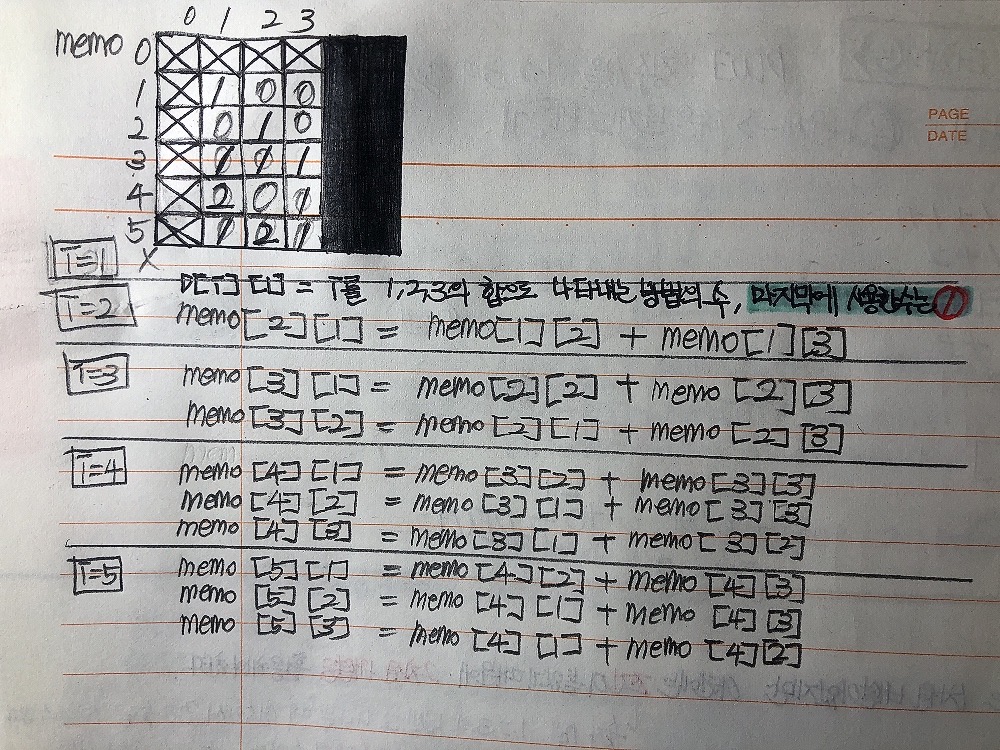 0 1 2 3
memo 0
1 1 0 0
2 0 1 0
PAGE
DATE
3 1 1 1
4 2 0 1
5 1 2 1
T=1 X
D[T][1] = T를 1,2,3의 합으로 나타내는 방법의 수, 마지막에 사용한수는 1
T=2 memo[2][1] = memo[1][2] + memo[1][3]
T=3 memo[3][1] = memo[2][2] + memo[2][3]
memo[3][2] = memo[2][1] + memo[2][3]
T=4 memo[4][1] = memo[3][2] + memo[3][3]
memo[4][2] = memo[3][1] + memo[3][3]
memo[4][3] = memo[3][1] + memo[3][2]
T=5 memo[5][1] = memo[4][2] + memo[4][3]
memo[5][2] = memo[4][1] + memo[4][3]
memo[5][3] = memo[4][1] + memo[4][2]